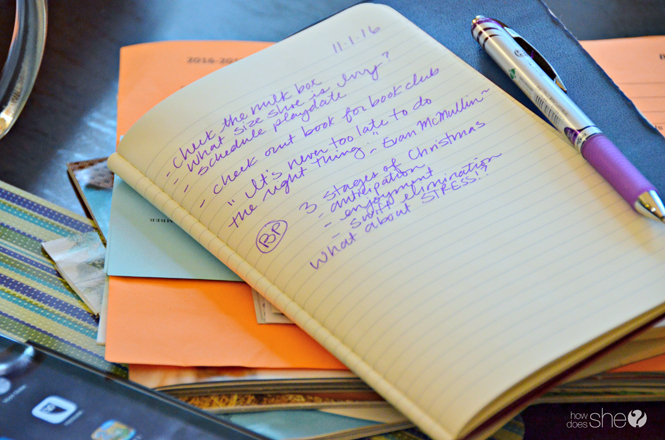 11-1-16
- Check the milk box
- What size shoe is Ivy?
- Schedule playdate
- Check out book for book club
"It's never too late to do
the right thing" - Evan McMullin~
BP 3 stages of Christmas
- anticipation
- enjoyment
- swift elimination
What about STRESS!?
2016-20
how
does
she?